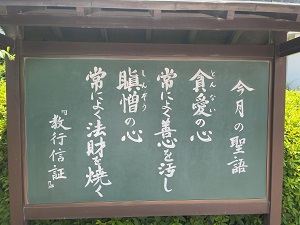 今月の聖語
とんない
貪愛の心
常によく善心を汚し
しんぞう
瞋憎の心
常によく法財を焼く
『教行信証』